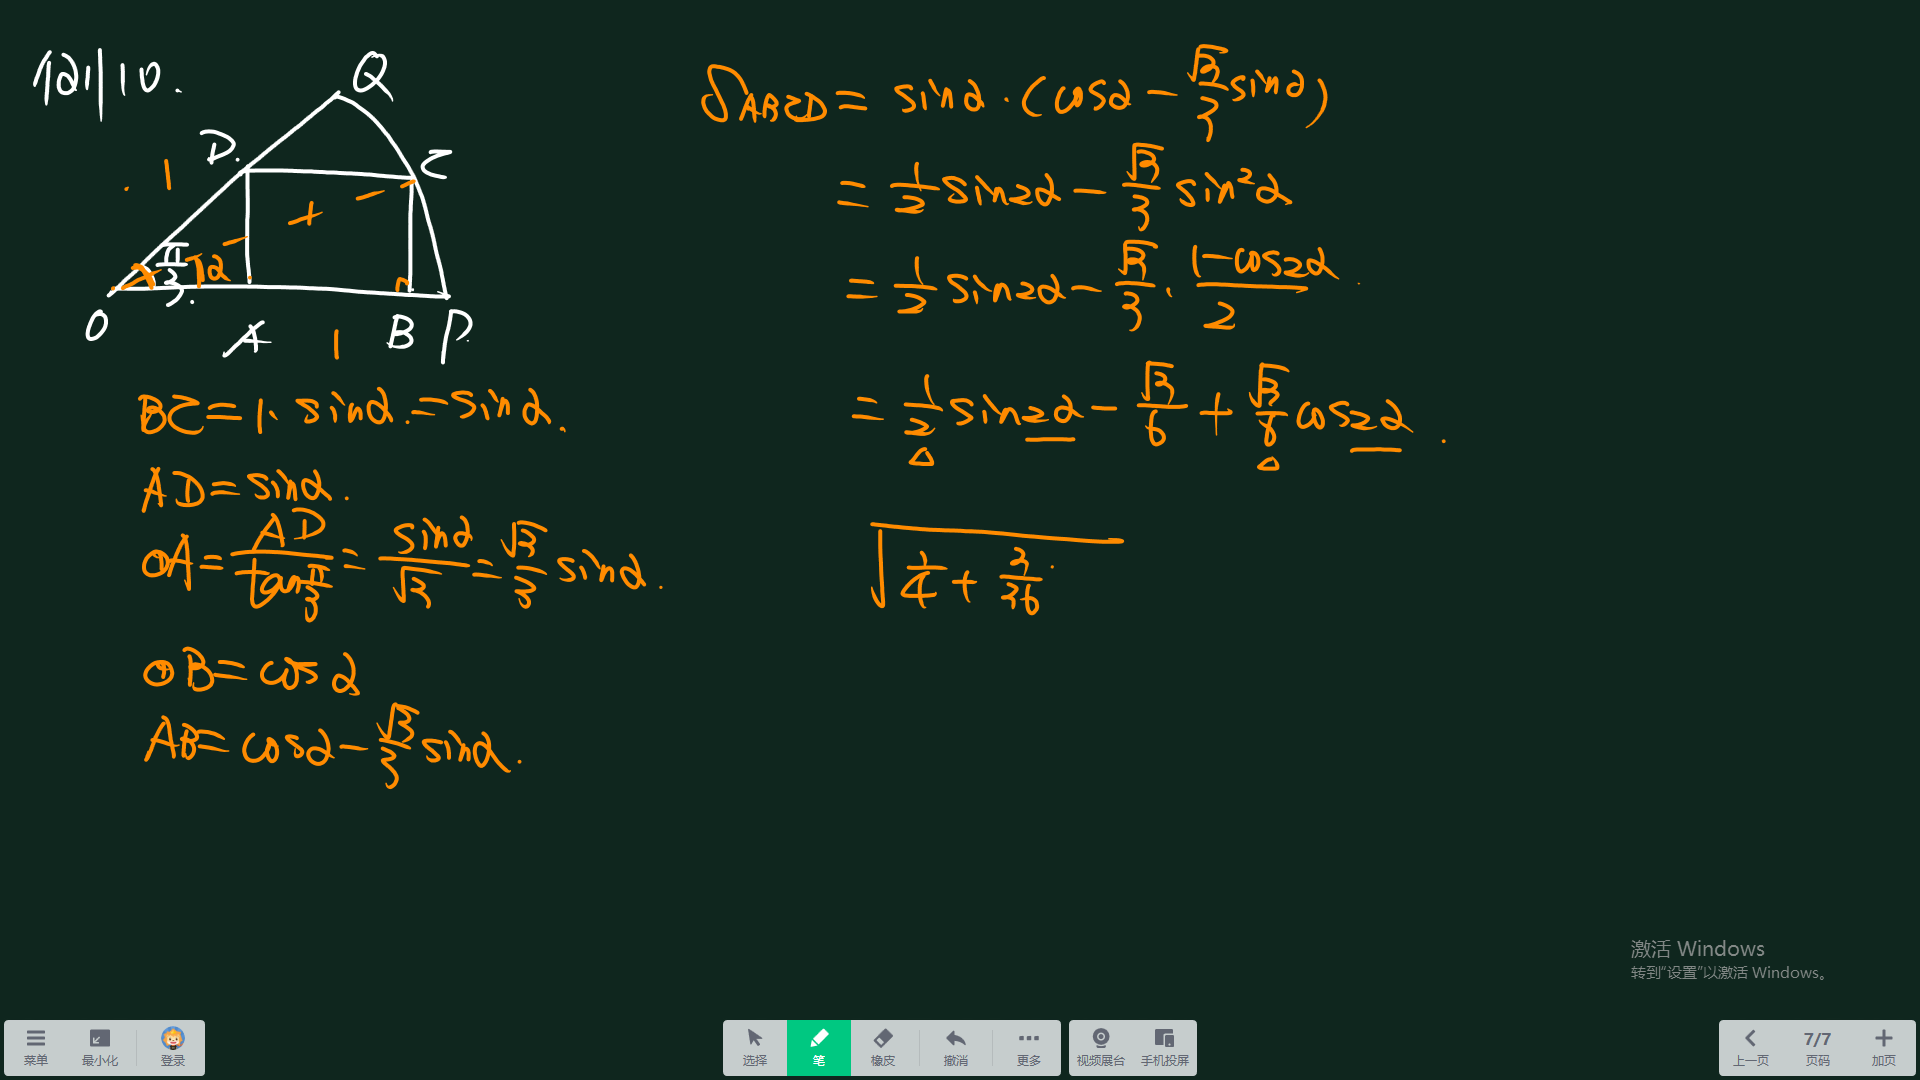 例10.
Q
D.
C
1
π/3
α
O
A
1
B
P
BC=1·sinα.=sinα.
AD=sinα.
OA=AD/tan π/3=sinα/√3=√3/3 sinα.
OB=cosα
AB=cosα-√3/3 sinα.
S_ABCD=sinα·(cosα-√3/3 sinα)
=1/2 sin2α-√3/3 sin²α
=1/2 sin2α-√3/3·(1-cos2α)/2
=1/2 sin2α-√3/6+√3/6 cos2α.
√(1/4+3/36
激活 Windows
转到“设置”以激活 Windows。
菜单 最小化 登录 选择 笔 橡皮 撤消 更多 视频展台 手机投屏 上一页 7/7 页码 加页